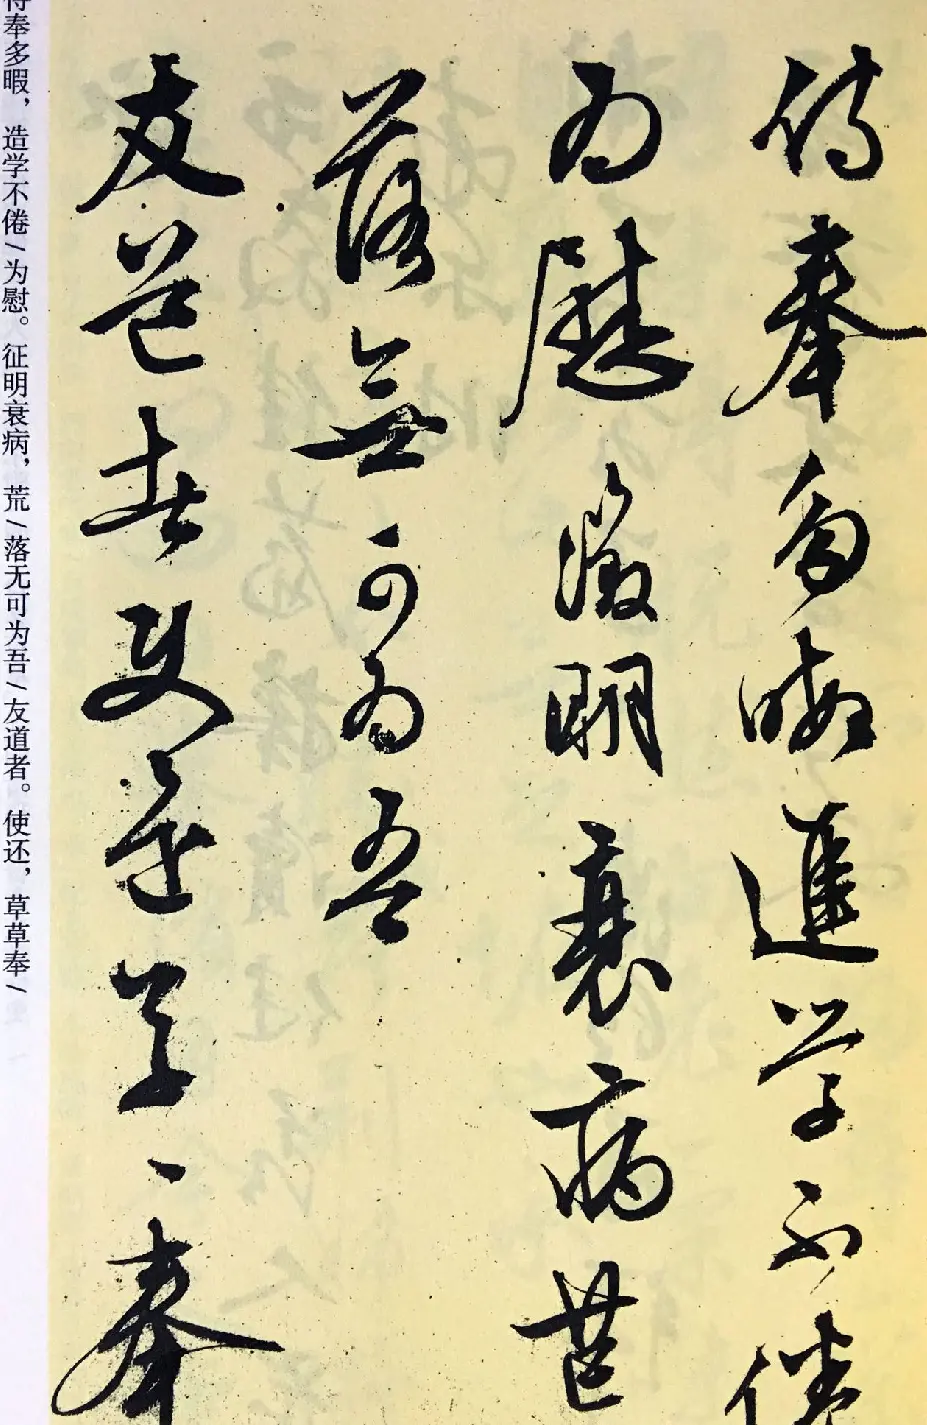 侍奉多暇進学不倦
為慰徵明衰病荒
落無可為吾
友道者使還草〻奉
侍奉多暇，造学不倦/为慰。征明衰病，荒/落无可为吾/友道者。使还，草草奉/